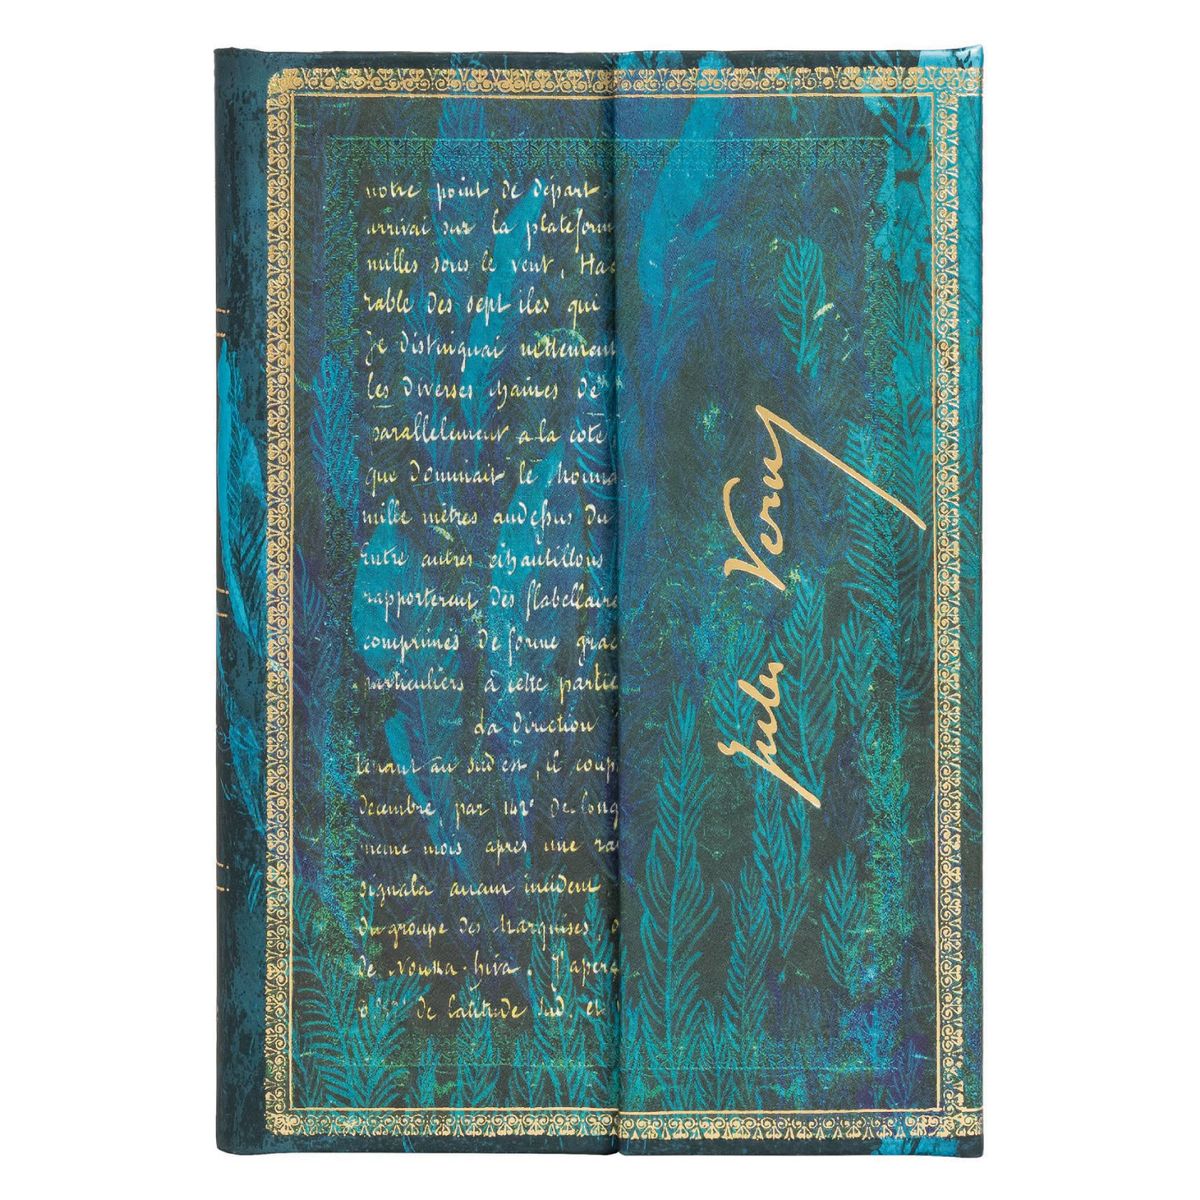 notre point de départ
arrivai sur la plateform
milles sous le vent, Hao
rable des sept iles qui
Je distinguai nettement
les diverses chaines de
parallelement a la cote
que dominait le Mouna
mille mètres audessus du
Entre autres échantillons
rapporterent des flabellaire
comprimés de forme grac
particuliers à cette partie
La direction
tenant au sud est, il coup
décembre, par 142° de long
meme mois après une ra
signala aucun incident
du groupe des Marquises,
de Nouka-hiva. J'aper
de latitude sud, et
Jules Verne